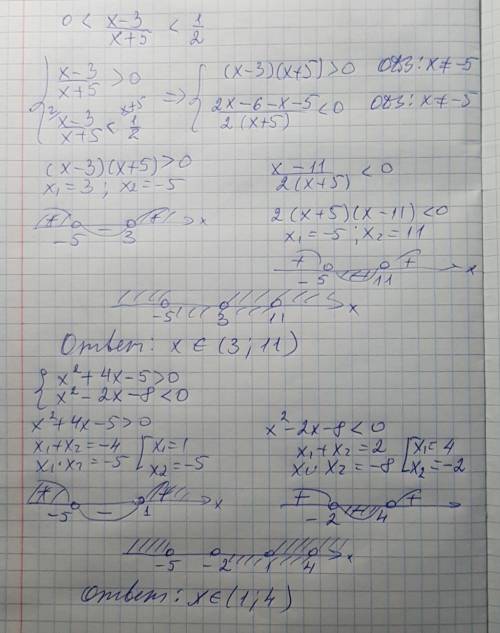 0 < (x-3)/(x+5) < 1/2
{ (x-3)/(x+5) > 0 => { (x-3)(x+5)>0 ОДЗ: x≠-5
2\ (x-3)/(x+5) < x+5\ 1/2 (2x-6-x-5)/(2(x+5)) < 0 ОДЗ: x≠-5
(x-3)(x+5)>0
x₁=3; x₂=-5
+ - + x
-5 3
(x-11)/(2(x+5)) < 0
2(x+5)(x-11)<0
x₁=-5; x₂=11
+ - + x
-5 11
-5 3 11 x
Ответ: x∈(3;11)
{ x²+4x-5>0
x²-2x-8<0
x²+4x-5>0
x₁+x₂=-4 [ x₁=1
x₁·x₂=-5 x₂=-5
+ - + x
-5 1
x²-2x-8<0
x₁+x₂=2 [ x₁=4
x₁·x₂=-8 x₂=-2
+ - +
-2 4
-5 -2 1 4 x
Ответ: x∈(1;4)